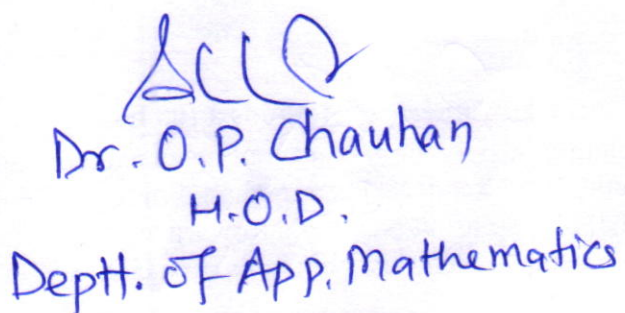 Dr. O.P. Chauhan
H.O.D.
Deptt. of App. Mathematics